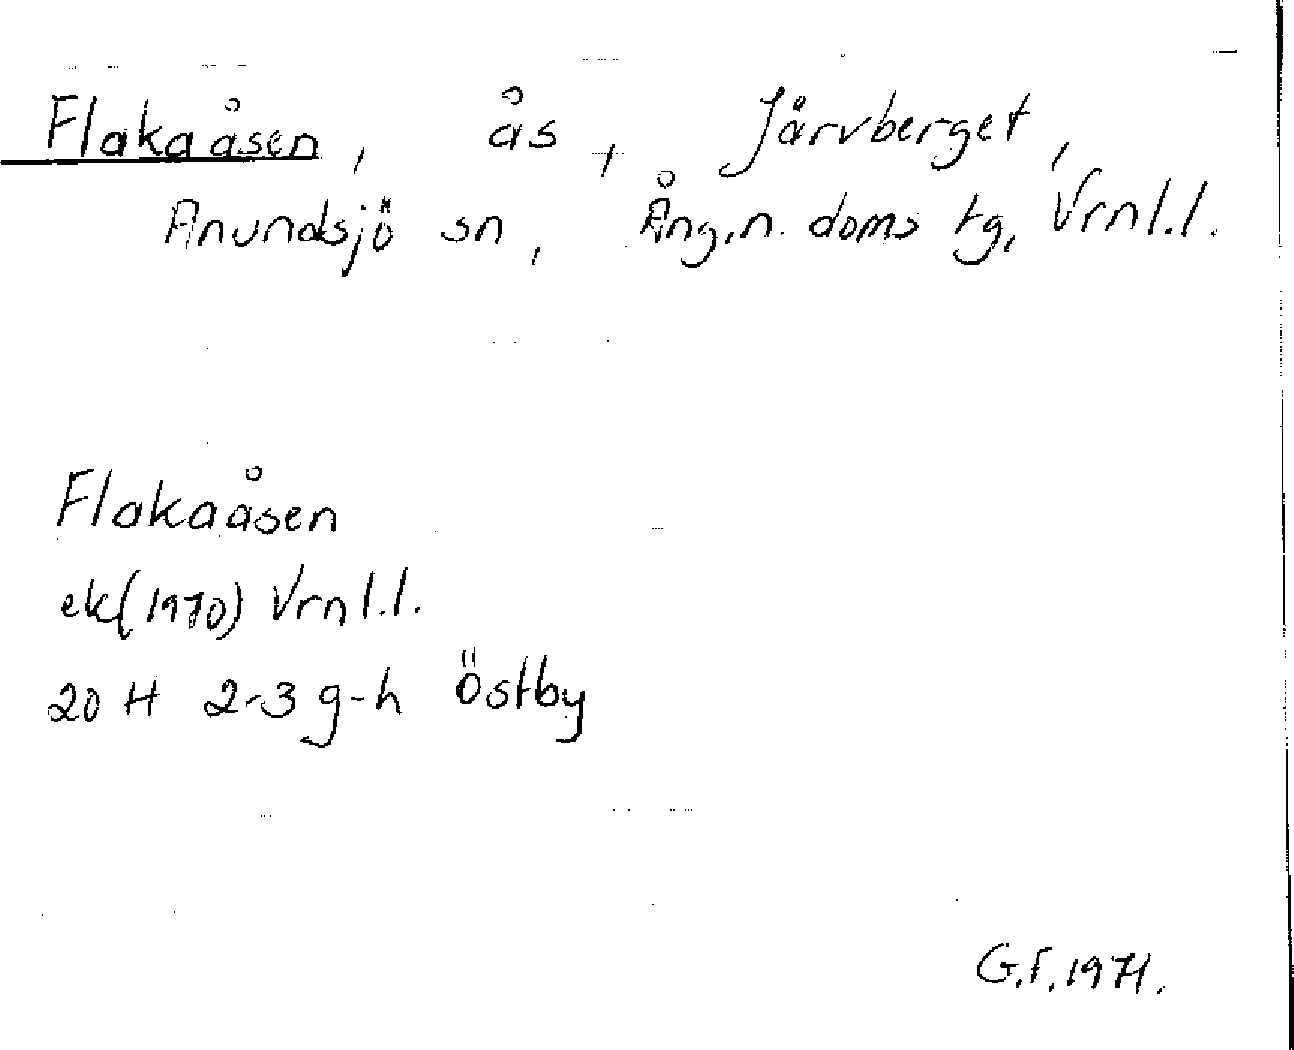 Flakaåsen, ås, Järvberget,
Anundsjö sn, Ång.n. doms tg, Vrnl.l.
Flakaåsen
ek(1970) Vrnl.l.
20 H 2-3 g-h Östby
G.F. 1971.